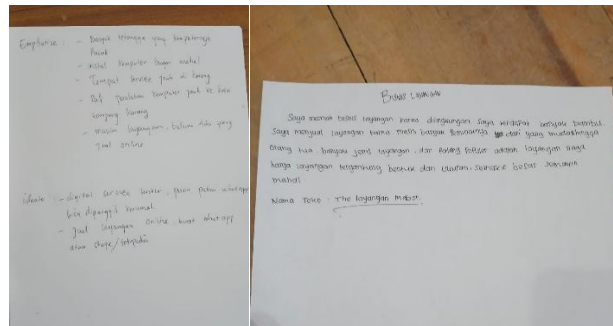 Empathise : - Banyak tetangga yang komputernya
rusak
- install komputer bayar mahal
- Tempat service jauh di karang
- Beli peralatan komputer jauh ke kota
- musim layangan, belum ada yang
jual online
ideate : - digital service center, pesan pakai whatsapp
bisa dipanggil kerumah
- Jual layangan online buat whatsapp
atau shopee/tokopedia
Bisnis Layangan
Saya memilih bisnis layangan karena dilingkungan saya terdapat banyak
Saya menjual layangan karna masih banyak dari yang muda hingga
orang tua, banyak jenis layangan, dan Paling besar adalah layangan naga
harga layangan tergantung bentuk dan ukuran, semakin besar semakin
mahal.
Nama Toko : The layangan